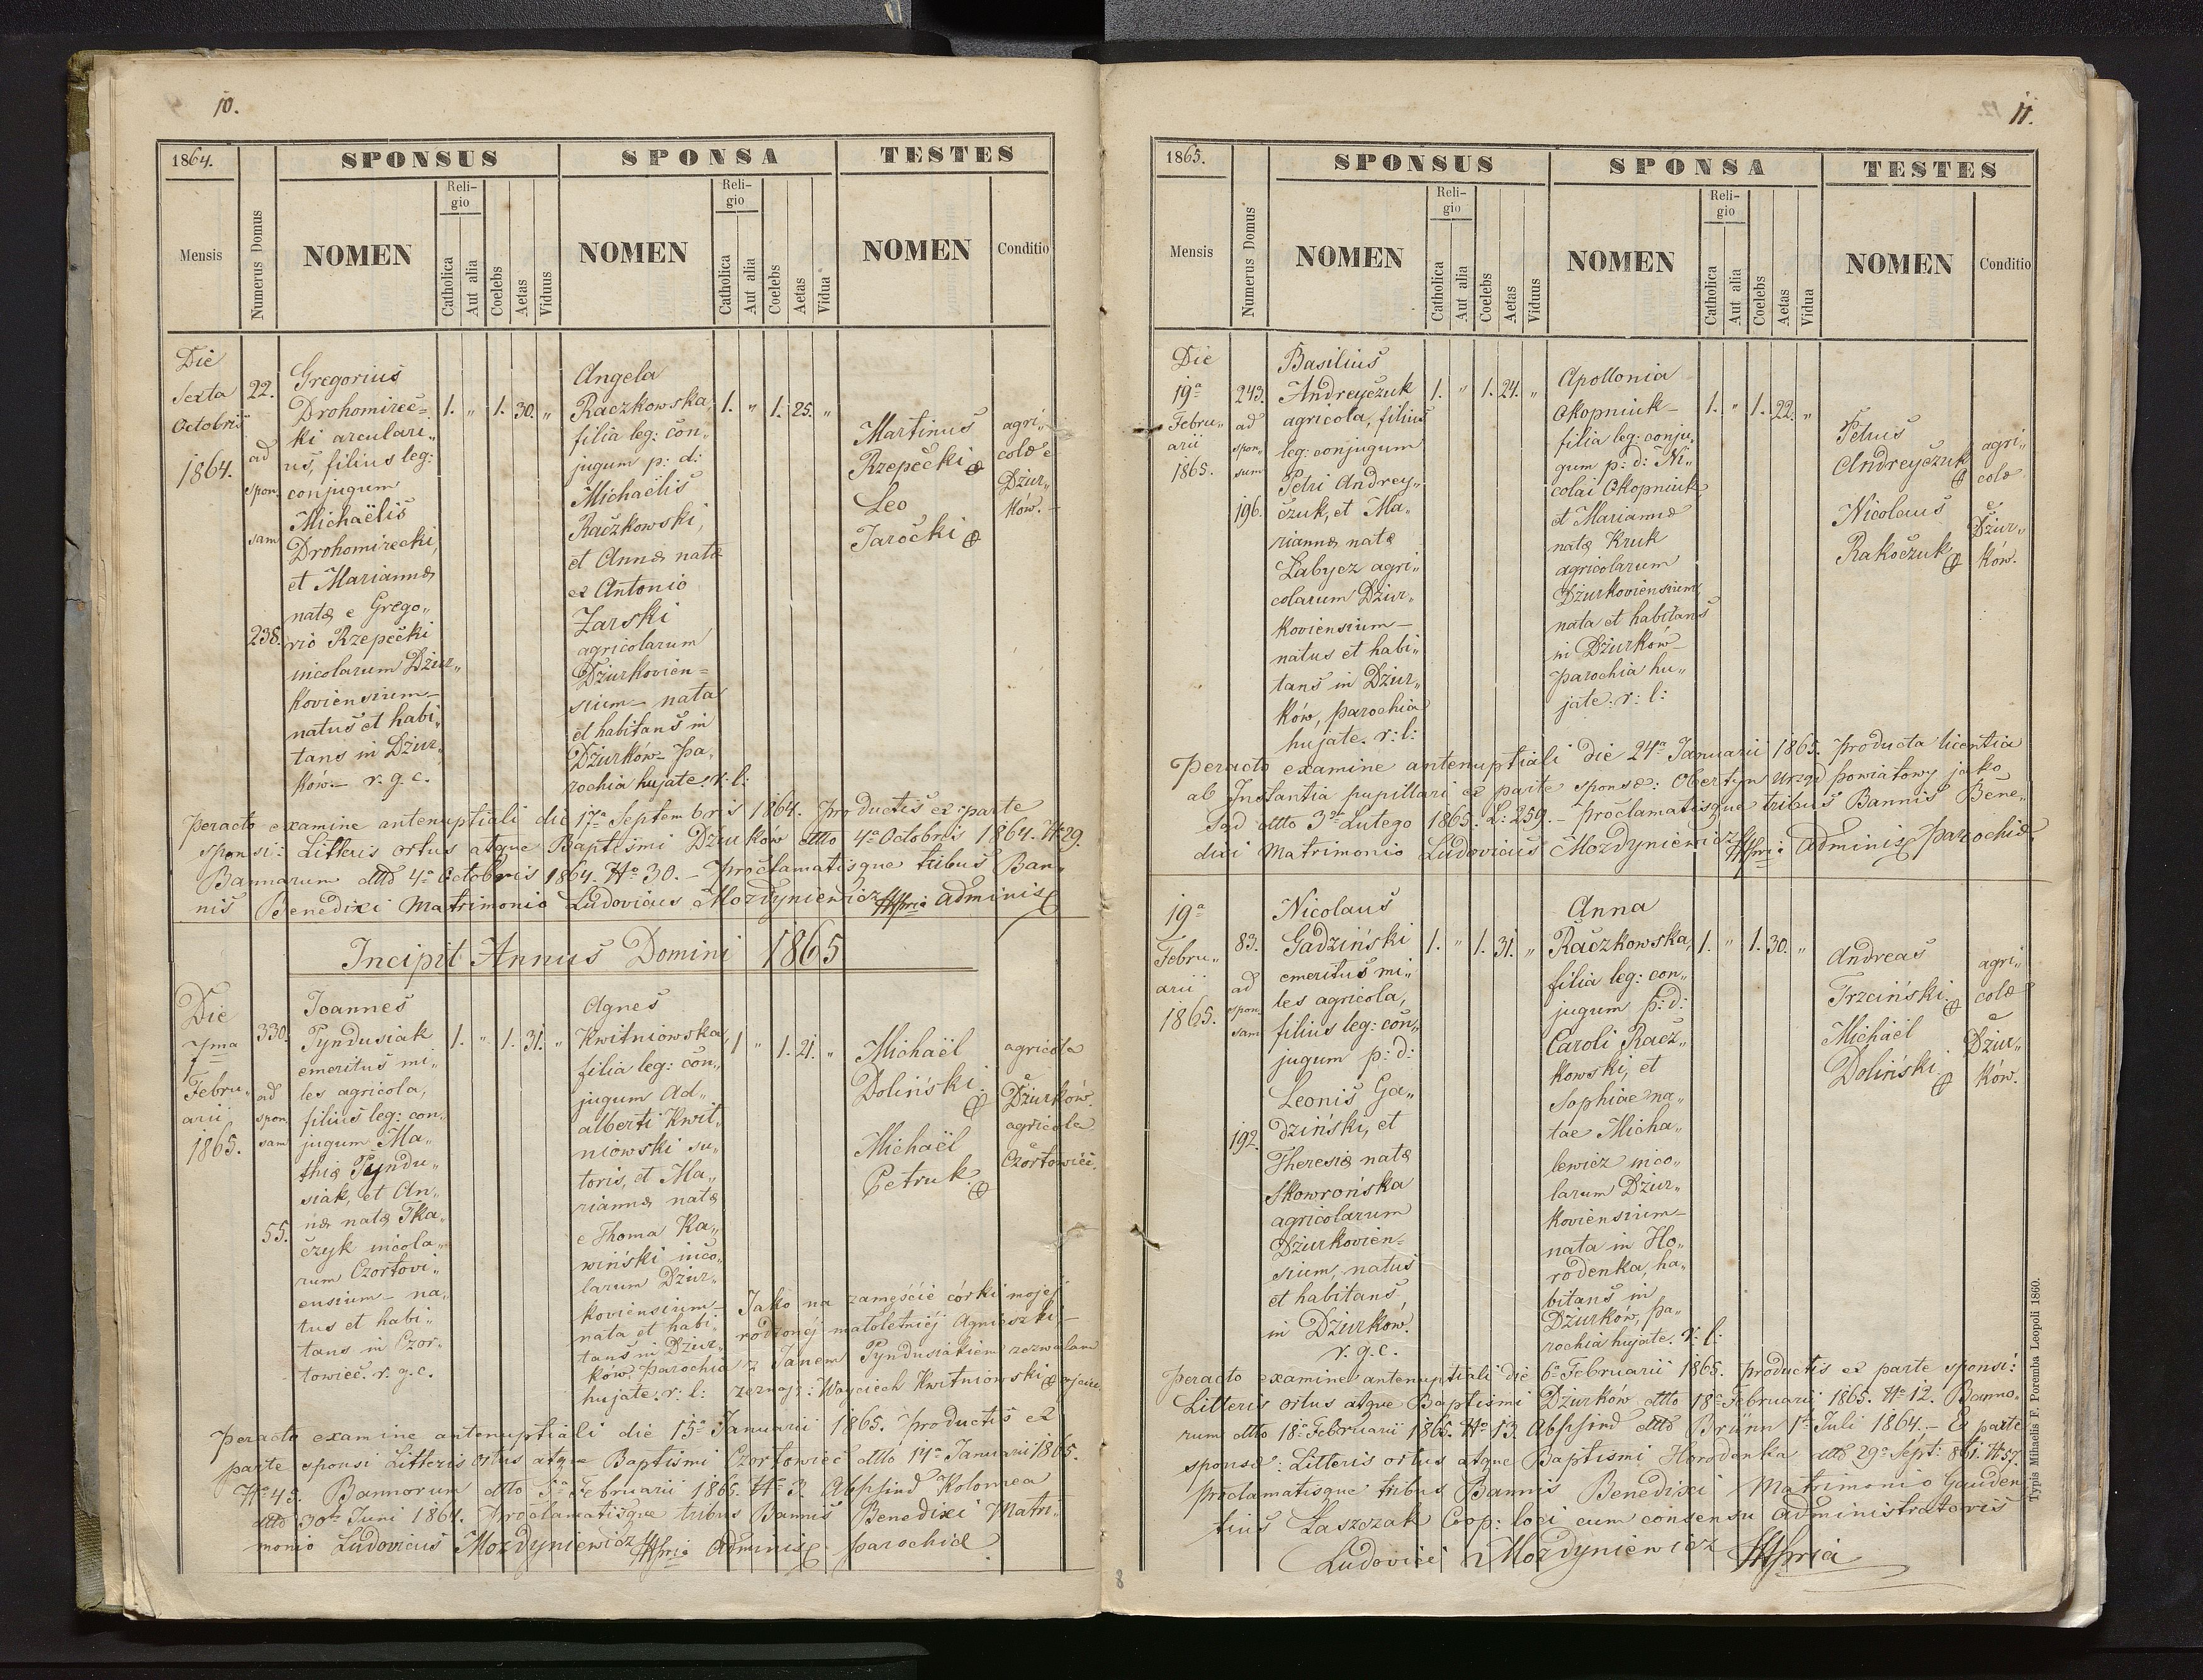 10.
1864.
SPONSUS
SPONSA
TESTES
Mensis
Numerus Domus
NOMEN
Reli-
gio
Catholica
Aut alia
Coelebs
Aetas
Viduus
NOMEN
Reli-
gio
Catholica
Aut alia
Coelebs
Aetas
Vidua
NOMEN
Conditio
Die
Sexta
Octobris
1864.
22.
ad
spon.
sam
238.
Gregorius
Drohomirec=
ki arculari„
us, filius leg:
conjugum
Michaëlis
Drohomirecki,
et Mariannæ
natæ e Grego„
rio Rzepecki
incolarum Dżur„
koviensium
natus et habi„
tans in Dżur„
ków.– r. g. c.
1. „ 1. 30. „
Angela
Raczkowska,
filia leg: con„
jugum p: d:
Michaëlis
Raczkowski,
et Annæ natæ
ex Antonio
Zarski
agricolarum
Dżurkovien=
sium– nata
et habitans in
Dżurków– Pa„
rochia hujate. r. l:
1. „ 1. 25. „
Martinus
Rzepecki
Leo
Jarocki
agri„
colæ e
Dżur„
ków.–
Peracto examine antenuptiali die 17a Septembris 1864. Productis ex parte
sponsi: Litteris ortus atque Baptismi Dżurków dtto 4a Octobris 1864. No 29.
Bannorum dtto 4a Octobris 1864. No 30.– Proclamatisque tribus Ban„
nis Benedixi Matrimonio Ludovicus Mozdyniewicz mpria adminis
Incipit Annus Domini 1865
Die
7ma
Febru„
arii
1865.
330.
ad
spon.
sam
55.
Joannes
Pyndusiak
emeritus mi„
les agricola,
filius leg: con„
jugum Ma„
thiæ Pyndu„
siak, et An„
næ natæ Tka„
czyk incola„
rum Czortovi„
ensium– na„
tus et habi„
tans in Czor„
towiec. r. g. c.
1. „ 1. 31. „
Agnes
Kwitniowska,
filia leg: con„
jugum Ad„
alberti Kwit„
niowski su„
toris, et Ma„
riannæ natæ
e Thoma Ka„
wiński inco„
larum Dżur„
koviensium–
nata et habi„
tans in Dżur„
ków. Parochia
hujate. r: l:
1 „ 1. 21. „
Michaël
Doliński.
Michaël
Petruk.
agricola
e
Dżurków.
agricola
e
Czortowiec.
Jako na zamęście córki mojej
rodzonej małoletniej Agnieszki
z Janem Pyndusiakiem zezwalam
zeznaję: Woyciech Kwitniowski ojciec
Peracto examine antenuptiali die 15a Januarii 1865. Productis ex
parte sponsi Litteris ortus atque Baptismi Czortowiec dtto 14a Januarii 1865.
No 45. Bannorum dtto 5a Februarii 1865. No 3. Abschied Kolomea
dtto 30ten Juni 1864. Proclamatisque tribus Bannis Benedixi Matri„
monio Ludovicus Mozdyniewicz mpria Adminis parochiæ
11.
1865.
SPONSUS
SPONSA
TESTES
Mensis
Numerus Domus
NOMEN
Reli-
gio
Catholica
Aut alia
Coelebs
Aetas
Viduus
NOMEN
Reli-
gio
Catholica
Aut alia
Coelebs
Aetas
Vidua
NOMEN
Conditio
Die
19a
Febru„
arii
1865.
243.
ad
spon„
sam
196.
Basilius
Andreyczuk
agricola, filius
leg: conjugum
Petri Andrey„
czuk, et Ma„
riannæ natæ
Łabycz agri„
colarum Dżur„
koviensium–
natus et habi„
tans in Dżur„
ków, parochia
hujate. r: l:
1. „ 1. 24. „
Apollonia
Okopniuk–
filia leg: conju„
gum p: d: Ni„
colai Okopniuk,
et Mariannæ
natæ Kruk
agricolarum
Dżurkoviensium,
nata et habitans
in Dżurków–
parochia hu„
jate. r: l:
1. „ 1. 22. „
Petrus
Andreyczuk
Nicolaus
Rakoczuk
agri„
colæ
e
Dżur„
ków.
Peracto examine antenuptiali die 24a Januarii 1865. Producta licentia
ab Instantia pupillari ex parte sponsæ: Obertyn Urząd powiatowy jako
Sąd dtto 3go Lutego 1865. L: 259.– Proclamatisque tribus Bannis Bene„
dixi Matrimonio Ludovicus Mozdyniewicz mpria Adminis Parochiæ
19a
Febru„
arii
1865.
83.
ad
spon.
sam
192.
Nicolaus
Gadziński
emeritus mi„
les agricola,
filius leg: con„
jugum p: d:
Leonis Ga„
dziński, et
Theresiæ natæ
Skowrońska
agricolarum
Dżurkovien„
sium, natus
et habitans
in Dżurków.
r. g. c.
1. „ 1. 31. „
Anna
Raczkowska,
filia leg: con„
jugum p: d:
Caroli Racz„
kowski, et
Sophiae na„
tae Micha„
lewicz inco„
larum Dżur„
koviensium–
nata in Ho„
rodenka, ha„
bitans in
Dżurków, pa„
rochia hujate. r: l:
1. „ 1. 30. „
Andreas
Trzciński
Michaël
Doliński
agri„
colæ
e
Dżur„
ków.
Peracto examine antenuptiali die 6a Februarii 1865. productis ex parte sponsi:
Litteris ortus atque Baptismi Dżurków dtto 18a Februarii 1865. No 12. Banno„
rum dtto 18a Februarii 1865. No 13. Abschied dtto Brünn 1ten Juli 1864.– Ex parte
sponsæ: Litteris ortus atque Baptismi Horodenka dtto 29a Sept: 861. No 57.
Proclamatisque tribus Bannis Benedixi Matrimonio Gauden„
tius Łaszczak Coop: loci cum consensu Administratoris
Ludovici Mozdyniewicz mpria
Typis Mihaelis F. Poremba Leopoli 1860.
8